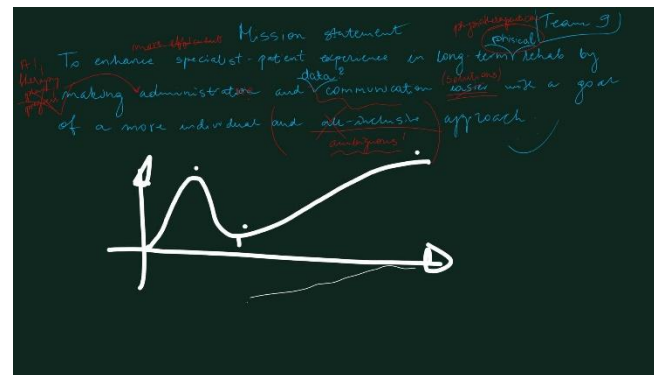 Mission statement
Team 9
physical
To enhance specialist-patient experience in long-term rehab by
data?
(solutions)
making administration and communication easier with a goal
of a more individual (and all-inclusive) approach.
ambiguous!